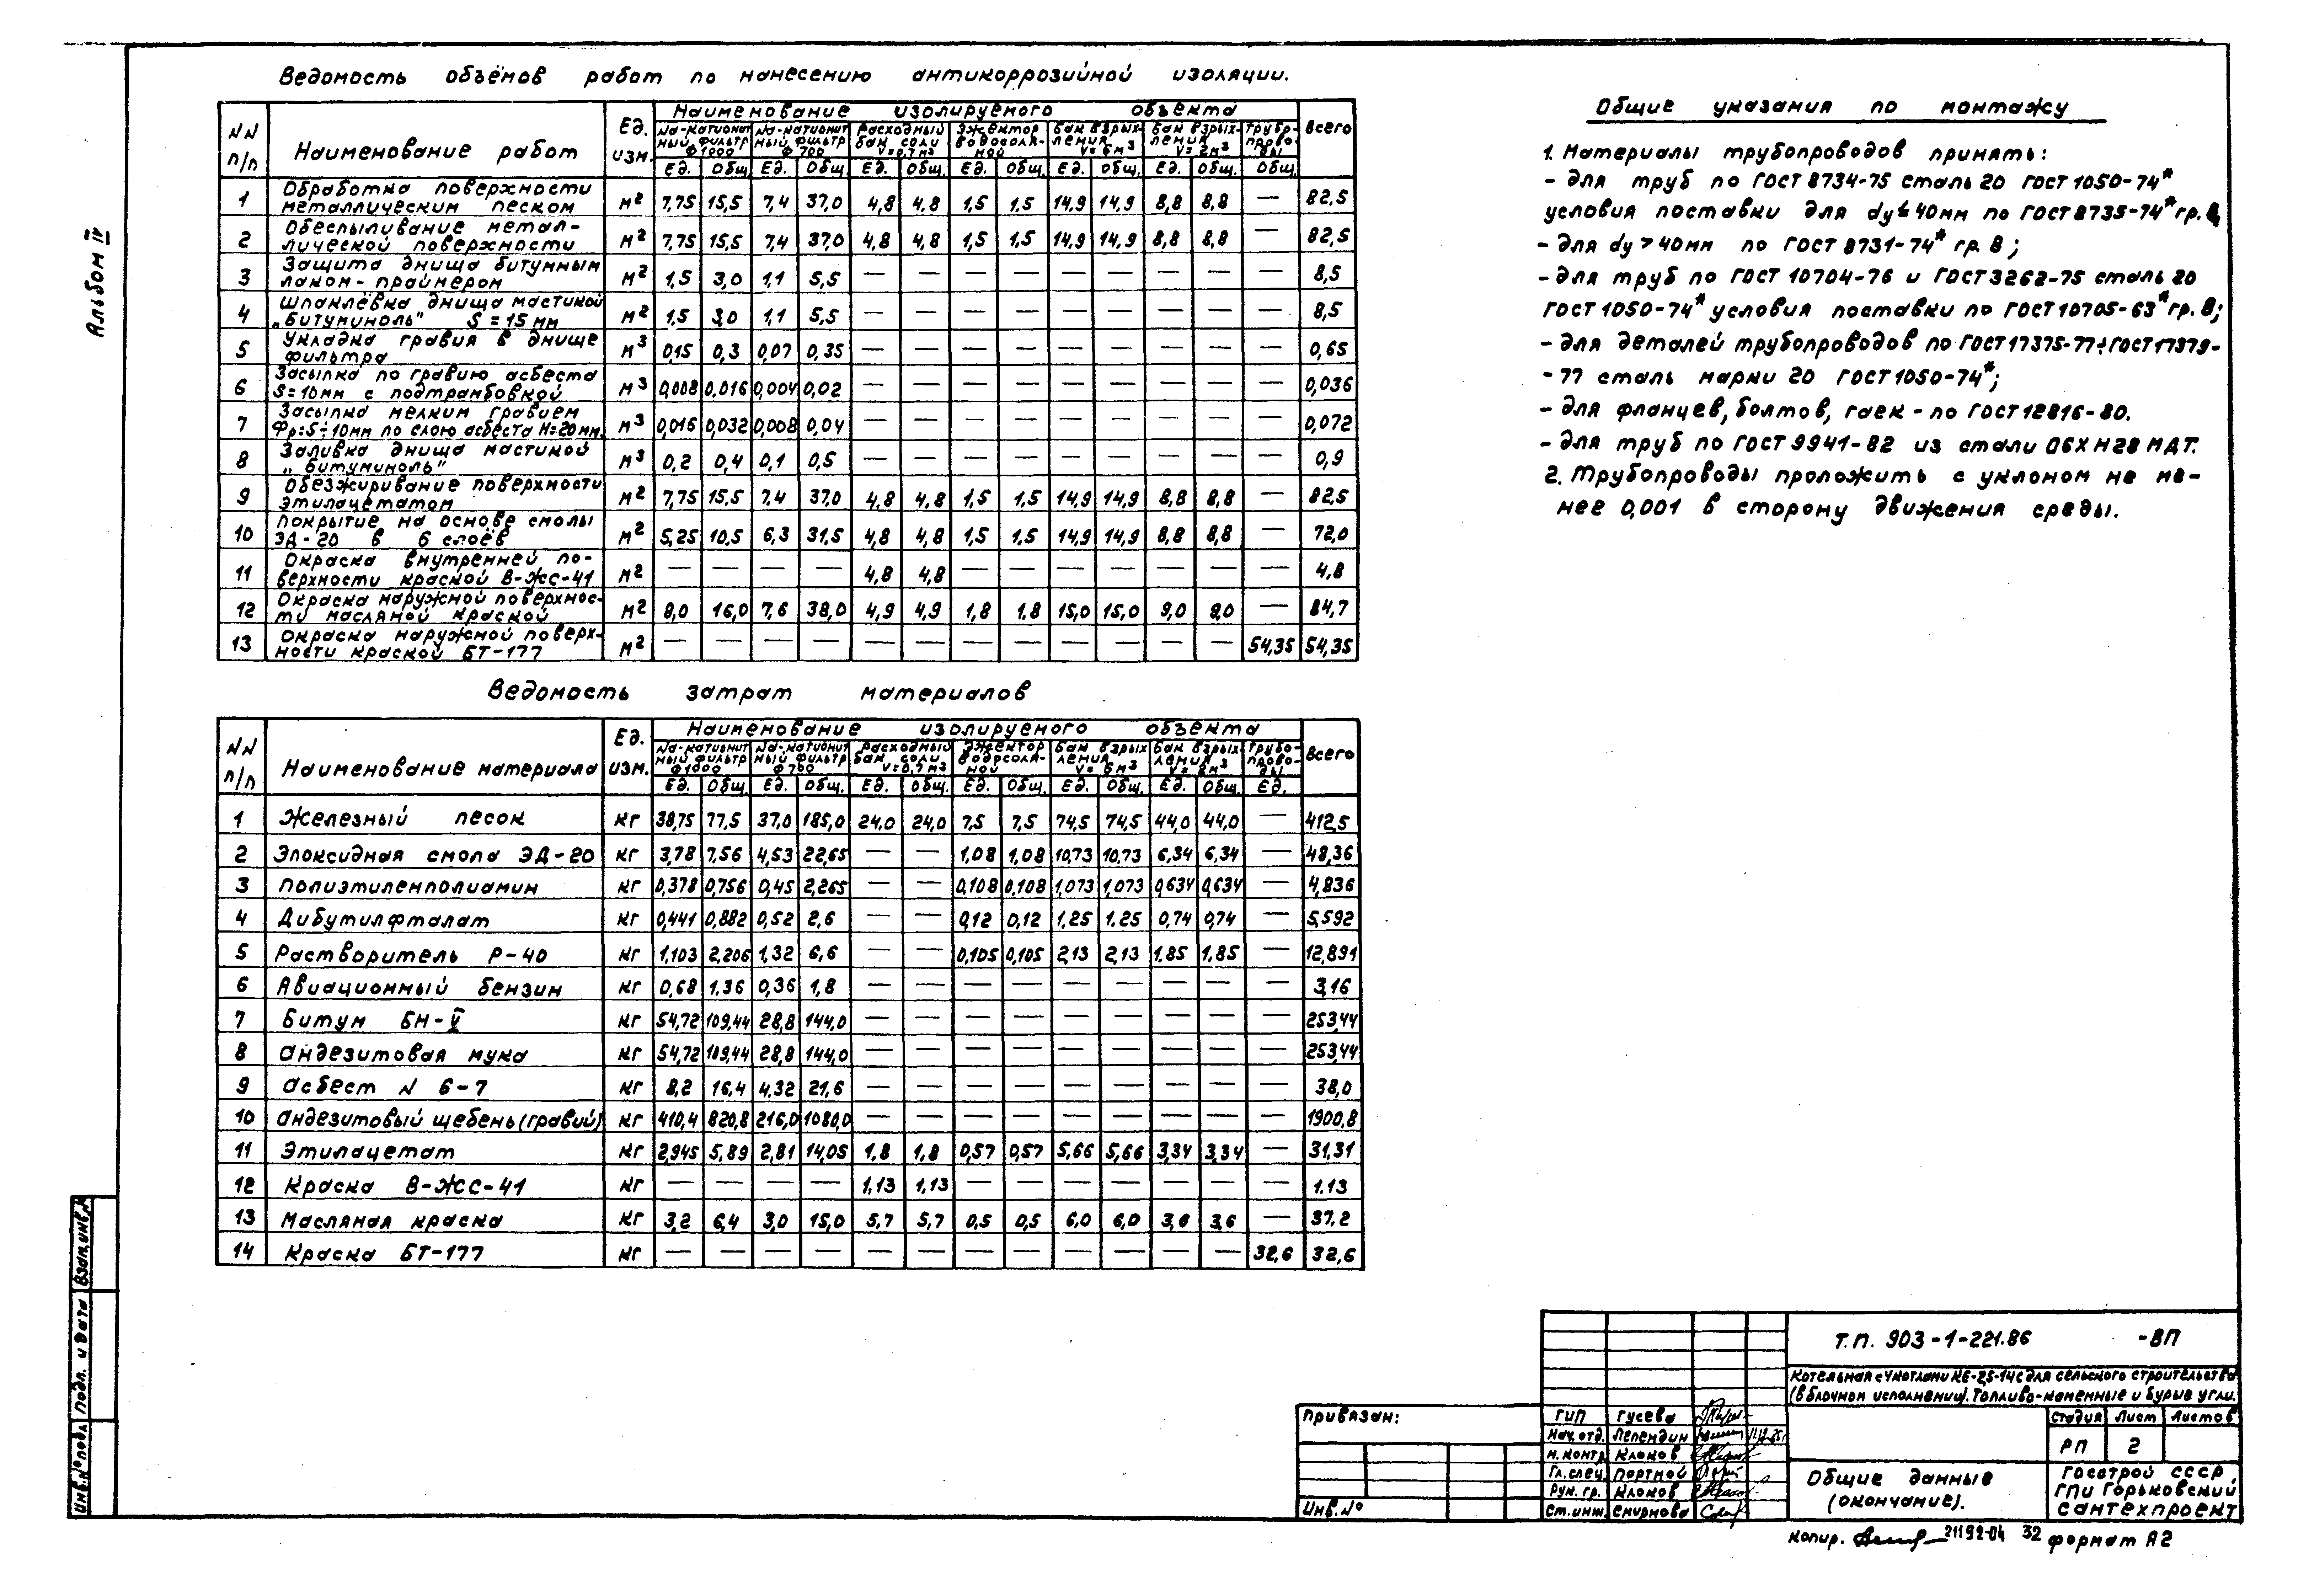 Альбом IV
Ведомость объёмов работ по нанесению антикоррозийной изоляции.
NN п/п | Наименование работ | Ед. изм. | Наименование изолируемого объекта | Всего
Na-катионитный фильтр Ф1000 | Na-катионитный фильтр Ф700 | Расходный бак соли V=0,7м3 | Эжектор водосоляной | Бак взрыхления V=6м3 | Бак взрыхления V=2м3 | Трубопроводы
Ед. | Общ. | Ед. | Общ. | Ед. | Общ. | Ед. | Общ. | Ед. | Общ. | Ед. | Общ. | Общ.
1 | Обработка поверхности металлическим песком | м2 | 7,75 | 15,5 | 7,4 | 37,0 | 4,8 | 4,8 | 1,5 | 1,5 | 14,9 | 14,9 | 8,8 | 8,8 | — | 82,5
2 | Обеспыливание металлической поверхности | м2 | 7,75 | 15,5 | 7,4 | 37,0 | 4,8 | 4,8 | 1,5 | 1,5 | 14,9 | 14,9 | 8,8 | 8,8 | — | 82,5
3 | Защита днища битумным лаком-праймером | м2 | 1,5 | 3,0 | 1,1 | 5,5 | — | — | — | — | — | — | — | — | — | 8,5
4 | Шпаклёвка днища мастикой „Битуминоль" S=15мм | м2 | 1,5 | 3,0 | 1,1 | 5,5 | — | — | — | — | — | — | — | — | — | 8,5
5 | Укладка гравия в днище фильтра | м3 | 0,15 | 0,3 | 0,07 | 0,35 | — | — | — | — | — | — | — | — | — | 0,65
6 | Засыпка по гравию асбеста S=10мм с подтрамбовкой | м3 | 0,008 | 0,016 | 0,004 | 0,02 | — | — | — | — | — | — | — | — | — | 0,036
7 | Засыпка мелким гравием Фр=5÷10мм по слою асбеста H=20мм. | м3 | 0,016 | 0,032 | 0,008 | 0,04 | — | — | — | — | — | — | — | — | — | 0,072
8 | Заливка днища мастикой „Битуминоль" | м3 | 0,2 | 0,4 | 0,1 | 0,5 | — | — | — | — | — | — | — | — | — | 0,9
9 | Обезжиривание поверхности этилацетатом | м2 | 7,75 | 15,5 | 7,4 | 37,0 | 4,8 | 4,8 | 1,5 | 1,5 | 14,9 | 14,9 | 8,8 | 8,8 | — | 82,5
10 | Покрытие на основе смолы ЭД-20 в 6 слоёв | м2 | 5,25 | 10,5 | 6,3 | 31,5 | 4,8 | 4,8 | 1,5 | 1,5 | 14,9 | 14,9 | 8,8 | 8,8 | — | 72,0
11 | Окраска внутренней поверхности краской В-ЖС-41 | м2 | — | — | — | — | 4,8 | 4,8 | — | — | — | — | — | — | — | 4,8
12 | Окраска наружной поверхности масляной краской | м2 | 8,0 | 16,0 | 7,6 | 38,0 | 4,9 | 4,9 | 1,8 | 1,8 | 15,0 | 15,0 | 9,0 | 9,0 | — | 84,7
13 | Окраска наружной поверхности краской БТ-177 | м2 | — | — | — | — | — | — | — | — | — | — | — | — | 54,35 | 54,35
Ведомость затрат материалов
NN п/п | Наименование материала | Ед. изм. | Наименование изолируемого объекта | Всего
Na-катионитный фильтр Ф1000 | Na-катионитный фильтр Ф700 | Расходный бак соли V=0,7м3 | Эжектор водосоляной | Бак взрыхления V=6м3 | Бак взрыхления V=2м3 | Трубопроводы
Ед. | Общ. | Ед. | Общ. | Ед. | Общ. | Ед. | Общ. | Ед. | Общ. | Ед. | Общ. | Ед.
1 | Железный песок | кг | 38,75 | 77,5 | 37,0 | 185,0 | 24,0 | 24,0 | 7,5 | 7,5 | 74,5 | 74,5 | 44,0 | 44,0 | — | 412,5
2 | Эпоксидная смола ЭД-20 | кг | 3,78 | 7,56 | 4,53 | 22,65 | — | — | 1,08 | 1,08 | 10,73 | 10,73 | 6,34 | 6,34 | — | 48,36
3 | Полиэтиленполиамин | кг | 0,378 | 0,756 | 0,45 | 2,265 | — | — | 0,108 | 0,108 | 1,073 | 1,073 | 0,634 | 0,634 | — | 4,836
4 | Дибутилфталат | кг | 0,441 | 0,882 | 0,52 | 2,6 | — | — | 0,12 | 0,12 | 1,25 | 1.25 | 0,74 | 0,74 | — | 5,592
5 | Растворитель Р-40 | кг | 1,103 | 2,206 | 1,32 | 6,6 | — | — | 0,105 | 0,105 | 2,13 | 2,13 | 1,85 | 1,85 | — | 12,891
6 | Авиационный бензин | кг | 0,68 | 1.36 | 0,36 | 1,8 | — | — | — | — | — | — | — | — | — | 3,16
7 | Битум БН-V | кг | 54,72 | 109,44 | 28,8 | 144,0 | — | — | — | — | — | — | — | — | — | 253,44
8 | Андезитовая мука | кг | 54,72 | 109,44 | 28,8 | 144,0 | — | — | — | — | — | — | — | — | — | 253,44
9 | Асбест N 6-7 | кг | 8,2 | 16,4 | 4,32 | 21,6 | — | — | — | — | — | — | — | — | — | 38,0
10 | Андезитовый щебень(гравий) | кг | 410,4 | 820,8 | 216,0 | 1080,0 | — | — | — | — | — | — | — | — | — | 1900,8
11 | Этилацетат | кг | 2,945 | 5,89 | 2,81 | 14,05 | 1,8 | 1,8 | 0,57 | 0,57 | 5,66 | 5,66 | 3,34 | 3,34 | — | 31,31
12 | Краска В-ЖС-41 | кг | — | — | — | — | 1,13 | 1,13 | — | — | — | — | — | — | — | 1.13
13 | Масляная краска | кг | 3,2 | 6,4 | 3,0 | 15,0 | 5,7 | 5,7 | 0,5 | 0,5 | 6,0 | 6,0 | 3,6 | 3,6 | — | 37,2
14 | Краска БТ-177 | кг | — | — | — | — | — | — | — | — | — | — | — | — | 32,6 | 32,6
Общие указания по монтажу
1. Материалы трубопроводов принять:
- для труб по ГОСТ 8734-75 сталь 20 ГОСТ 1050-74*
условия поставки для dy≤40мм по ГОСТ 8735-74* гр.
- для dy>40мм по ГОСТ 8731-74* гр. В;
- для труб по ГОСТ 10704-76 и ГОСТ 3262-75 сталь 20
ГОСТ 1050-74* условия поставки по ГОСТ 10705-63* гр. В;
- для деталей трубопроводов по ГОСТ 17375-77÷ГОСТ 17379-
-77 сталь марки 20 ГОСТ 1050-74*;
- для фланцев, болтов, гаек - по ГОСТ 12816-80.
- для труб по ГОСТ 9941-82 из стали 06ХН28МДТ.
2. Трубопроводы проложить с уклоном не ме-
нее 0,001 в сторону движения среды.
Инв. № подл. | Подп. и дата | Взам. инв. №
Привязан:
Инв. №
ГИП Гусева
Нач. отд. Лепендин
Н. контр. Клоков
Гл. спец. Портной
Рук. гр. Клоков
Ст. инж. Смирнова
Т.П. 903-1-221.86 -ВП
Котельная с 4 котлами КЕ-2,5-14с для сельского строительства
(в блочном исполнении). Топливо-каменные и бурые угли.
Стадия | Лист | Листов
РП | 2
Общие данные
(окончание).
Госстрой СССР
ГПИ Горьковский
Сантехпроект
Копир. 21192-04 32 формат А2